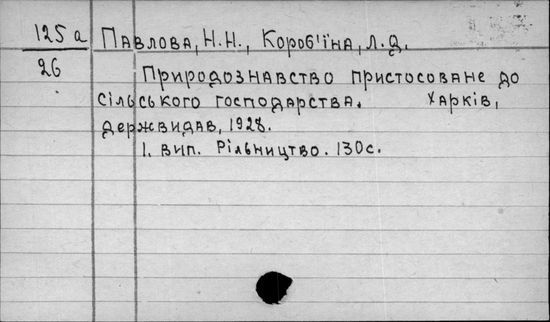 125а Павлова, Н.Н., Короб'їна, Л.Д.
26 Природознавство пристосоване до
сільського господарства. Харків,
держвидав, 1928.
1. вип. Рільництво. 130с.